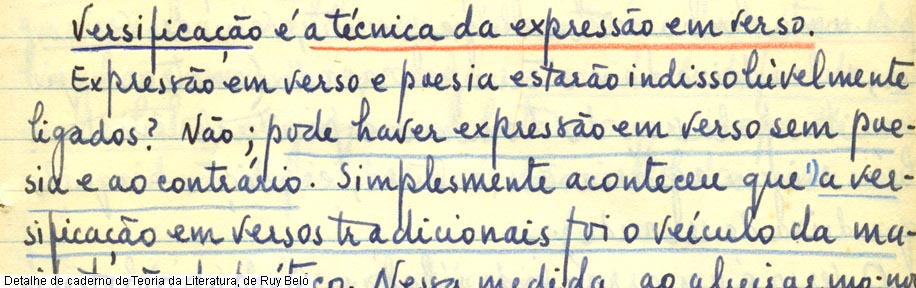 Versificação é a técnica da expressão em verso.
Expressão em verso e poesia estarão indissolùvelmente
ligados? Não; pode haver expressão em verso sem poe-
sia e ao contrário. Simplesmente aconteceu que 1) a ver-
sificação em versos tradicionais foi o veículo da ma-
Nessa medida, ao
Detalhe de caderno de Teoria da Literatura, de Ruy Belo